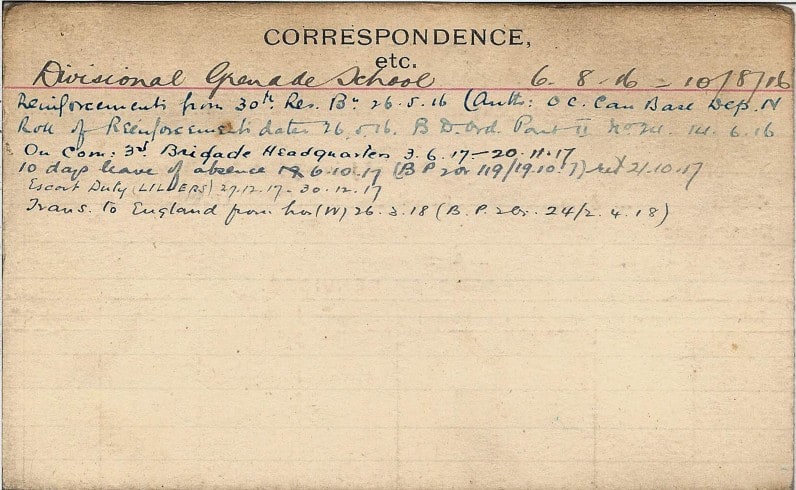 CORRESPONDENCE,
etc.
Divisional Grenade School 6-8-16 - 10/8/16
Reinforcements from 30th Res. Bn 26.5.16 (Auth: O C. Can Base Dep. N
Roll of Reinforcements dated 26.5.16. B D. Ord. Part II No 24. 14. 6.16
On Com: 3rd Brigade Headquarters 3.6.17-20.11.17
10 days leave of absence 6.10.17 (B P 2 or 119/19.10.17) ret 21.10.17
Escort Duty (LILLERS) 27.12.17-30.12.17
Trans. to England from hos (W) 26.3.18 (B.P. 2 Or. 24/2.4.18)